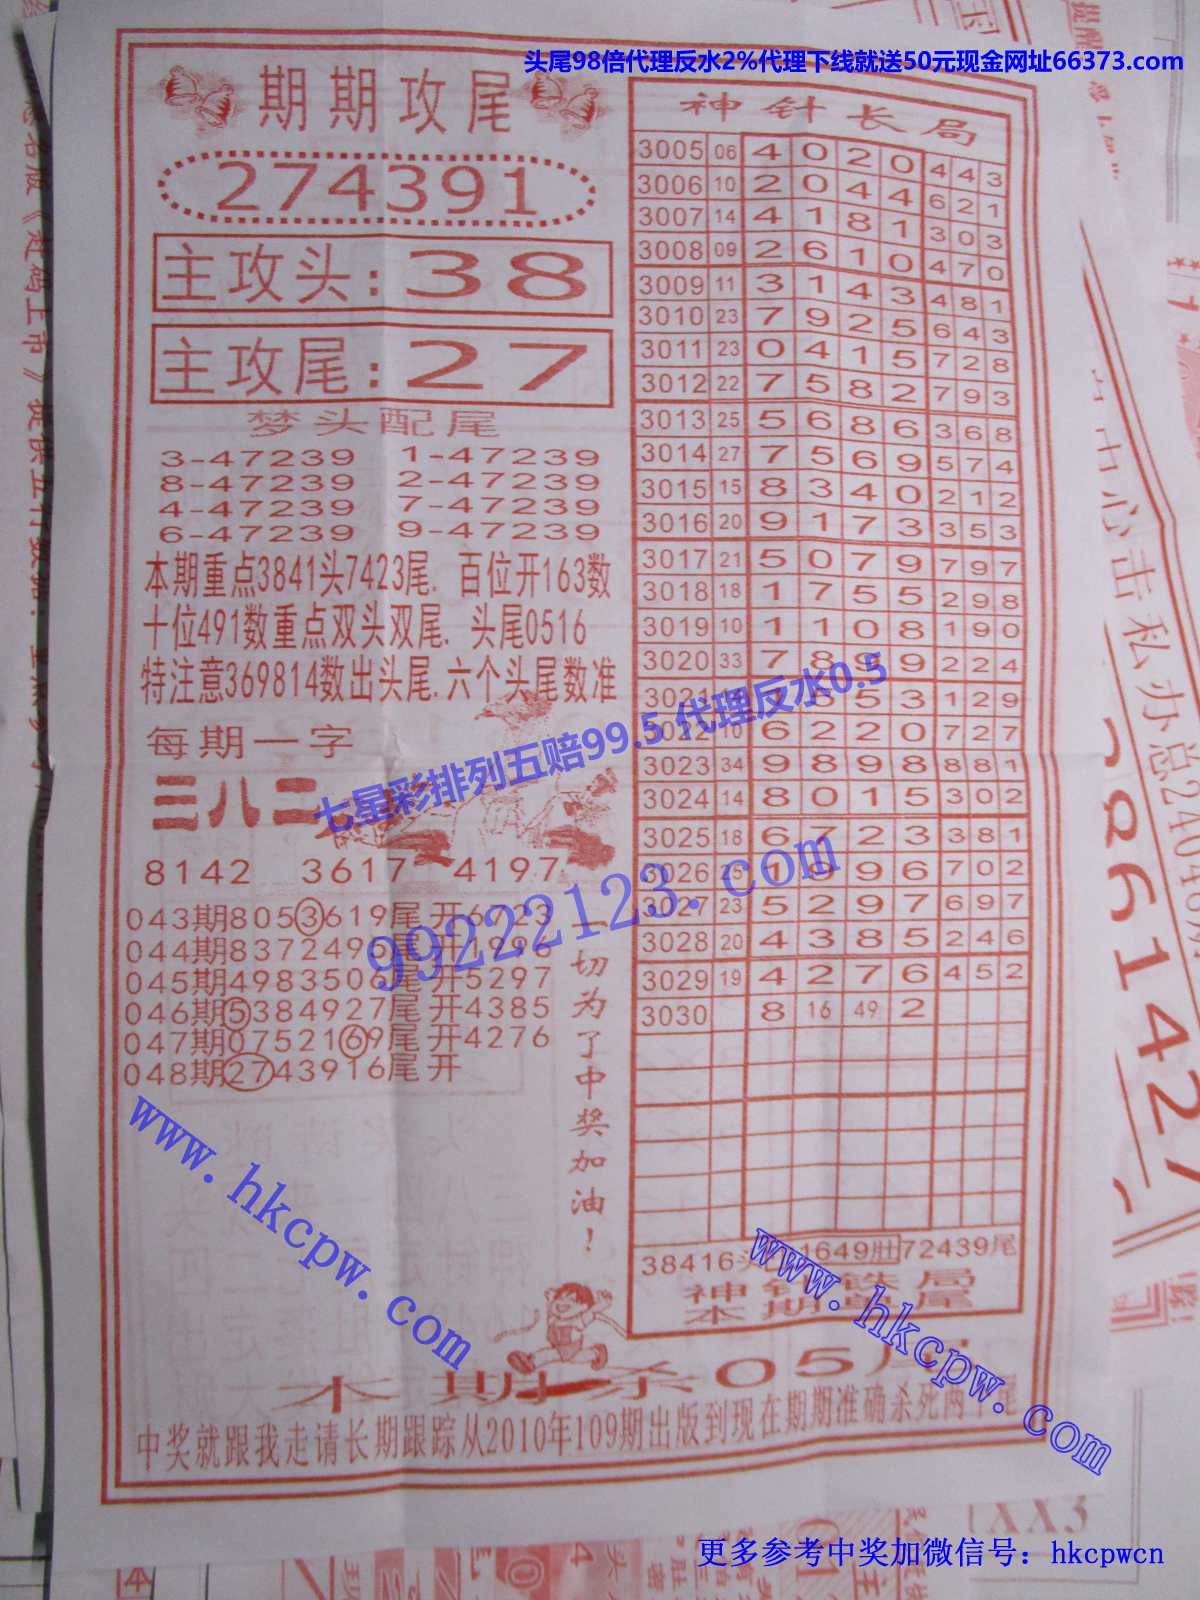 头尾98倍代理反水2%代理下线就送50元现金网址66373.com
期期攻尾
274391
主攻头:38
主攻尾:27
梦头配尾
3-47239 1-47239
8-47239 2-47239
4-47239 7-47239
6-47239 9-47239
本期重点3841头7423尾. 百位开163数
十位491数重点双头双尾. 头尾0516
特注意369814数出头尾.六个头尾数准
每期一字
三八二
8142 3617 4197
043期8053619尾开6723
044期8372496尾开1996
045期4983506尾开5297
046期5384927尾开4385
047期0752169尾开4276
048期2743916尾开
一切为了中奖加油!
神针长局
3005 06 4 0 2 0 4 4 3
3006 10 2 0 4 4 6 2 1
3007 14 4 1 8 1 3 0 3
3008 09 2 6 1 0 4 7 0
3009 11 3 1 4 3 4 8 1
3010 23 7 9 2 5 6 4 3
3011 23 0 4 1 5 7 2 8
3012 22 7 5 8 2 7 9 3
3013 25 5 6 8 6 3 6 8
3014 27 7 5 6 9 5 7 4
3015 15 8 3 4 0 2 1 2
3016 20 9 1 7 3 3 5 3
3017 21 5 0 7 9 7 9 7
3018 18 1 7 5 5 2 9 8
3019 10 1 1 0 8 1 9 0
3020 33 7 8 9 9 2 2 4
3021 5 3 1 2 9
3022 10 6 2 2 0 7 2 7
3023 34 9 8 9 8 8 8 1
3024 14 8 0 1 5 3 0 2
3025 18 6 7 2 3 3 8 1
3026 25 1 9 9 6 7 0 2
3027 23 5 2 9 7 6 9 7
3028 20 4 3 8 5 2 4 6
3029 19 4 2 7 6 4 5 2
3030 8 16 49 2
38416头 1649肚 72439尾
神针铁局
本期单尾
本期杀05尾
中奖就跟我走请长期跟踪从2010年109期出版到现在期期准确杀死两个尾
七星彩排列五赔99.5 代理反水0.5
99222123.com
www.hkcpw.com
www.hkcpw.com
更多参考中奖加微信号：hkcpwcn